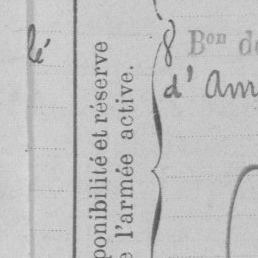 lé
ponibilité et réserve
e l'armée active.
8 Bon de
d' Am